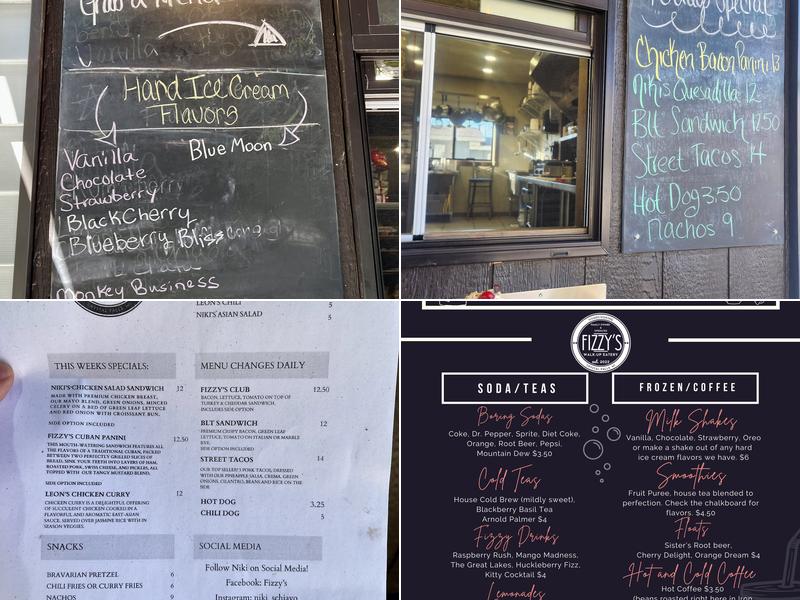 Grab a Menu
Vanilla
Hand Ice Cream
Flavors
Vanilla
Blue Moon
Chocolate
Strawberry
Black Cherry
Blueberry Bliss
Monkey Business
Todays Special
Chicken Bacon Panini 13
Nikis Quesadilla 12
Blt Sandwich 12.50
Street Tacos 14
Hot Dog 3.50
Nachos 9
LEON'S CHILI 5
NIKI'S ASIAN SALAD 5
THIS WEEKS SPECIALS:
NIKI'S CHICKEN SALAD SANDWICH 12
MADE WITH PREMIUM CHICKEN BREAST,
OUR MAYO BLEND, GREEN ONIONS, MINCED
CELERY ON A BED OF GREEN LEAF LETTUCE
AND RED ONION WITH CROISSANT BUN.
SIDE OPTION INCLUDED
FIZZY'S CUBAN PANINI 12.50
THIS MOUTH-WATERING SANDWICH FEATURES ALL
THE FLAVORS OF A TRADITIONAL CUBAN, PACKED
BETWEEN TWO PERFECTLY GRILLED SLICES OF
BREAD. SINK YOUR TEETH INTO LAYERS OF HAM,
ROASTED PORK, SWISS CHEESE, AND PICKLES, ALL
TOPPED WITH OUR TANGY MUSTARD BLEND.
SIDE OPTION INCLUDED
LEON'S CHICKEN CURRY 12
CHICKEN CURRY IS A DELIGHTFUL OFFERING
OF SUCCULENT CHICKEN COOKED IN A
FLAVORFUL AND AROMATIC EAST-ASIAN
SAUCE. SERVED OVER JASMINE RICE WITH IN
SEASON VEGGIES.
SNACKS
BRAVARIAN PRETZEL 6
CHILI FRIES OR CURRY FRIES 6
NACHOS 9
MENU CHANGES DAILY
FIZZY'S CLUB 12.50
BACON, LETTUCE, TOMATO ON TOP OF
TURKEY & CHEDDAR SANDWICH.
INCLUDES SIDE OPTION
BLT SANDWICH 12
PREMIUM CRISPY BACON, GREEN LEAF
LETTUCE, TOMATO ON ITALIAN OR MARBLE
RYE.
SIDE OPTION INCLUDED
STREET TACOS 14
OUR TOP SELLER! 3 PORK TACOS, DRESSED
WITH OUR PINEAPPLE SALSA, CREMA, GREEN
ONIONS, CILANTRO, BEANS AND RICE ON THE
SIDE.
HOT DOG 3.25
CHILI DOG 5
SOCIAL MEDIA
Follow Niki on Social Media!
Facebook: Fizzy's
Instagram: niki_schiavo
FIZZY'S
WALK-UP EATERY
est. 2023
SODA/TEAS
Boring Sodas
Coke, Dr. Pepper, Sprite, Diet Coke,
Orange, Root Beer, Pepsi,
Mountain Dew $3.50
Cold Teas
House Cold Brew (mildly sweet),
Blackberry Basil Tea
Arnold Palmer $4
Fizzy Drinks
Raspberry Rush, Mango Madness,
The Great Lakes, Huckleberry Fizz,
Kitty Cocktail $4
Lemonades
FROZEN/COFFEE
Milk Shakes
Vanilla, Chocolate, Strawberry, Oreo
or make a shake out of any hard
ice cream flavors we have. $6
Smoothies
Fruit Puree, house tea blended to
perfection. Check the chalkboard for
flavors. $4.50
Floats
Sister's Root beer,
Cherry Delight, Orange Dream $4
Hot and Cold Coffee
Hot Coffee $3.50
(beans roasted right here in Iron